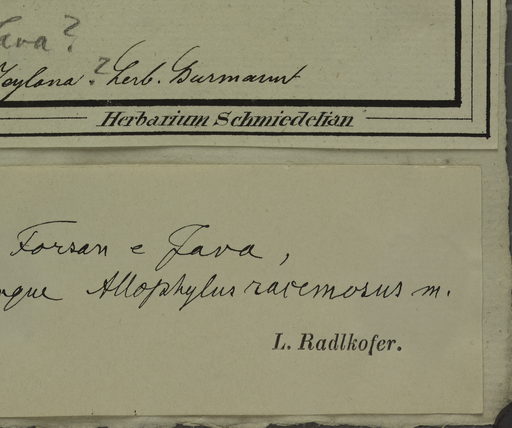 Java?
Zeylona? herb. Burmanni
Herbarium Schmiedelian
Forsan e Java,
que Allophylus racemosus m.
L. Radlkofer.